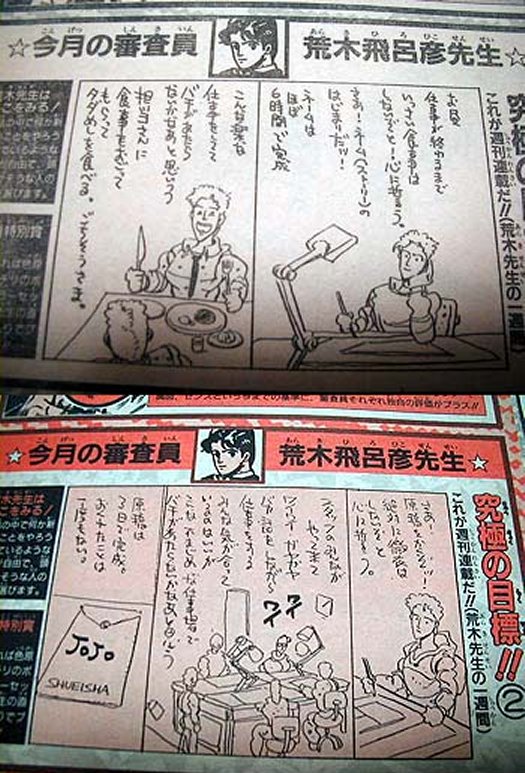 ☆今月の審査員
荒木飛呂彦先生☆
これが週刊連載だ!!(荒木先生の一週間)
仕事が終わるまで
いっさい食事は
しないぞと!心に誓う。
さあ!ネーム(ストーリー)の
はじまりだ!!
ネームは
ほぼ
6時間で完成
こんな楽な
仕事をしてて
バチがあたら
ないかなあと思いつつ
担当さんに
食事をおごって
もらって
タダめしを食べる。ごちそうさま。
木先生は
こをみる!
特別賞
☆今月の審査員
荒木飛呂彦先生☆
究極の目標!!②
これが週刊連載だ!!(荒木先生の一週間)
さあ!
原稿をかくぞ!!
絶対に徹夜は
しないぞと
心に誓う。
やって来て
ワイワイガヤガヤ
バカ話をしながら
仕事をする
みんな気が合って
いるのはいいが
こんなふまじめな仕事場で
バチがあたらないかなあと思う
ワイワイ
原稿は
3日で完成。
おちたことは
一度もない。
JOJO
SHUEISHA
木先生は
こをみる!
の中で何か新
ことをやろう
ているような
が自由で、頭
そうな人の
選びます。
特別賞